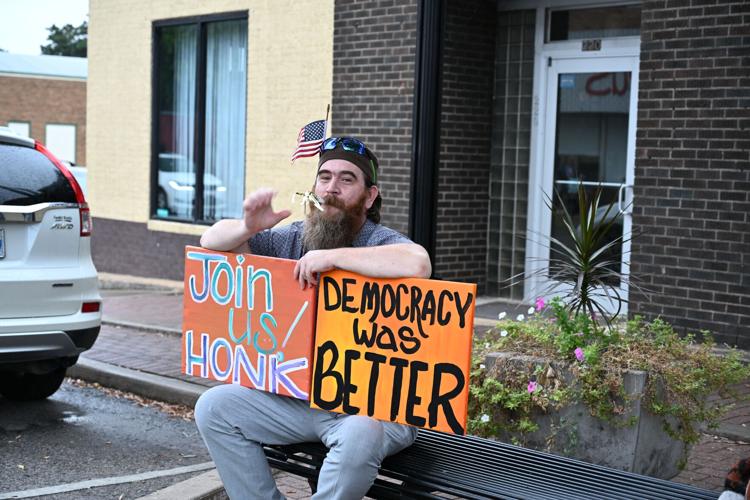 220
Join
us!
HONK
DEMOCRACY
was
BETTER
AWD